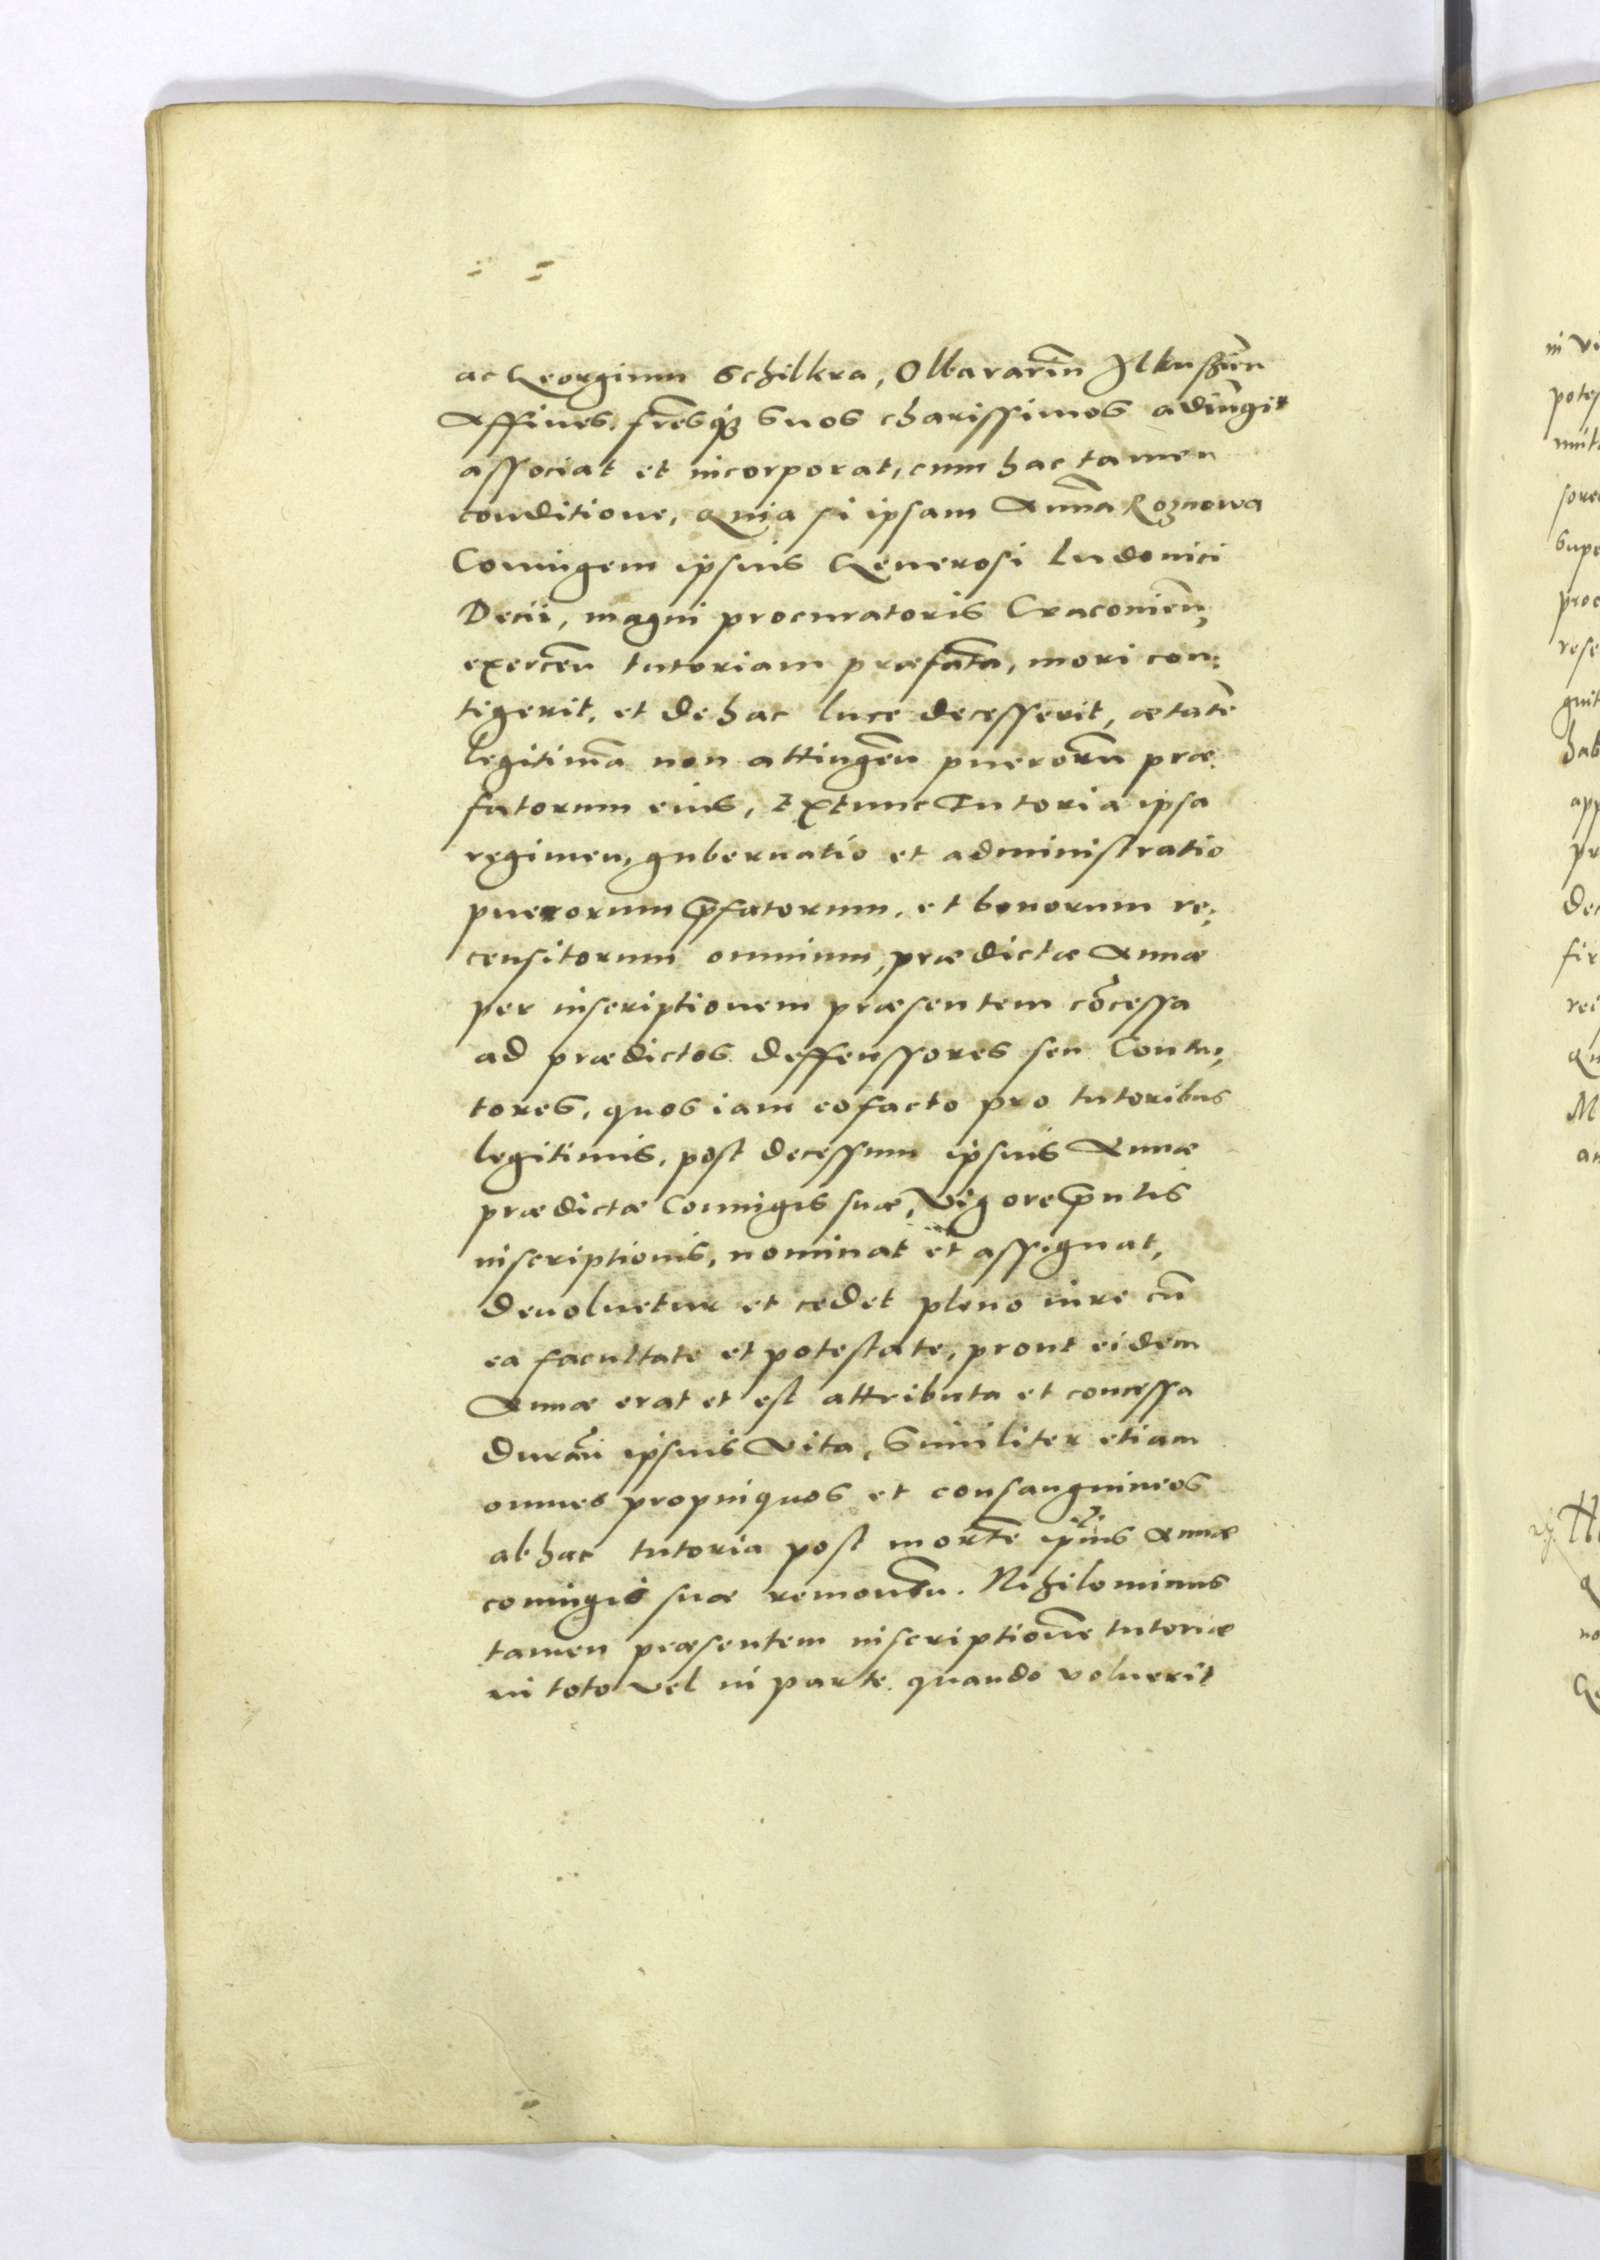 ac Georgium Schilkra, Olbararin̄ Ilkussien̄
Affines, fr̄esq₃ suos charissimos adiungit
associat et incorporat, cum hac tamen
conditione, Quia si ipsam Annā Roznowa
Coniugem ipsius Generosi Ludouici
Decii, magni procuratoris Cracouien̄,
exercen̄ tutoriam præfatā, mori con:
tigerit, et de hac luce decesserit, ætatē
legitimā non attingen̄ puerorū præ
fatorum eius, Extunc Tutoria ipsa
regimen, gubernatio et administratio
puerorum p̄fatorum, et bonorum re:
censitorum omnium, prædictæ Annæ
per inscriptionem præsentem cōcessa
ad prædictos deffenssores seu Contu:
tores, quos iam eo facto pro tutoribus
legitimis, post decessum ipsius Annæ
prædictæ Coniugis suæ, Vigore p̄ntis
inscriptionis, nominat et assignat,
deuoluetur et cedet pleno iure cū
ea facultate et potestate, prout eidem
Annæ erat et est attributa et concessa
duran̄ ipsius Vita, Similiter etiam
omnes propinquos et consanguineos
ab hac tutoria post mortē ip̄ius Annæ
coniugis suæ remouen̄. Nihilominus
tamen præsentem inscriptionē tutoriæ
in toto vel in parte quando voluerit
in vi
potes
sore
supe
proc
rese
guit
hab
app
pr
dec
fir
rei
Qu
M
an
no
Ge